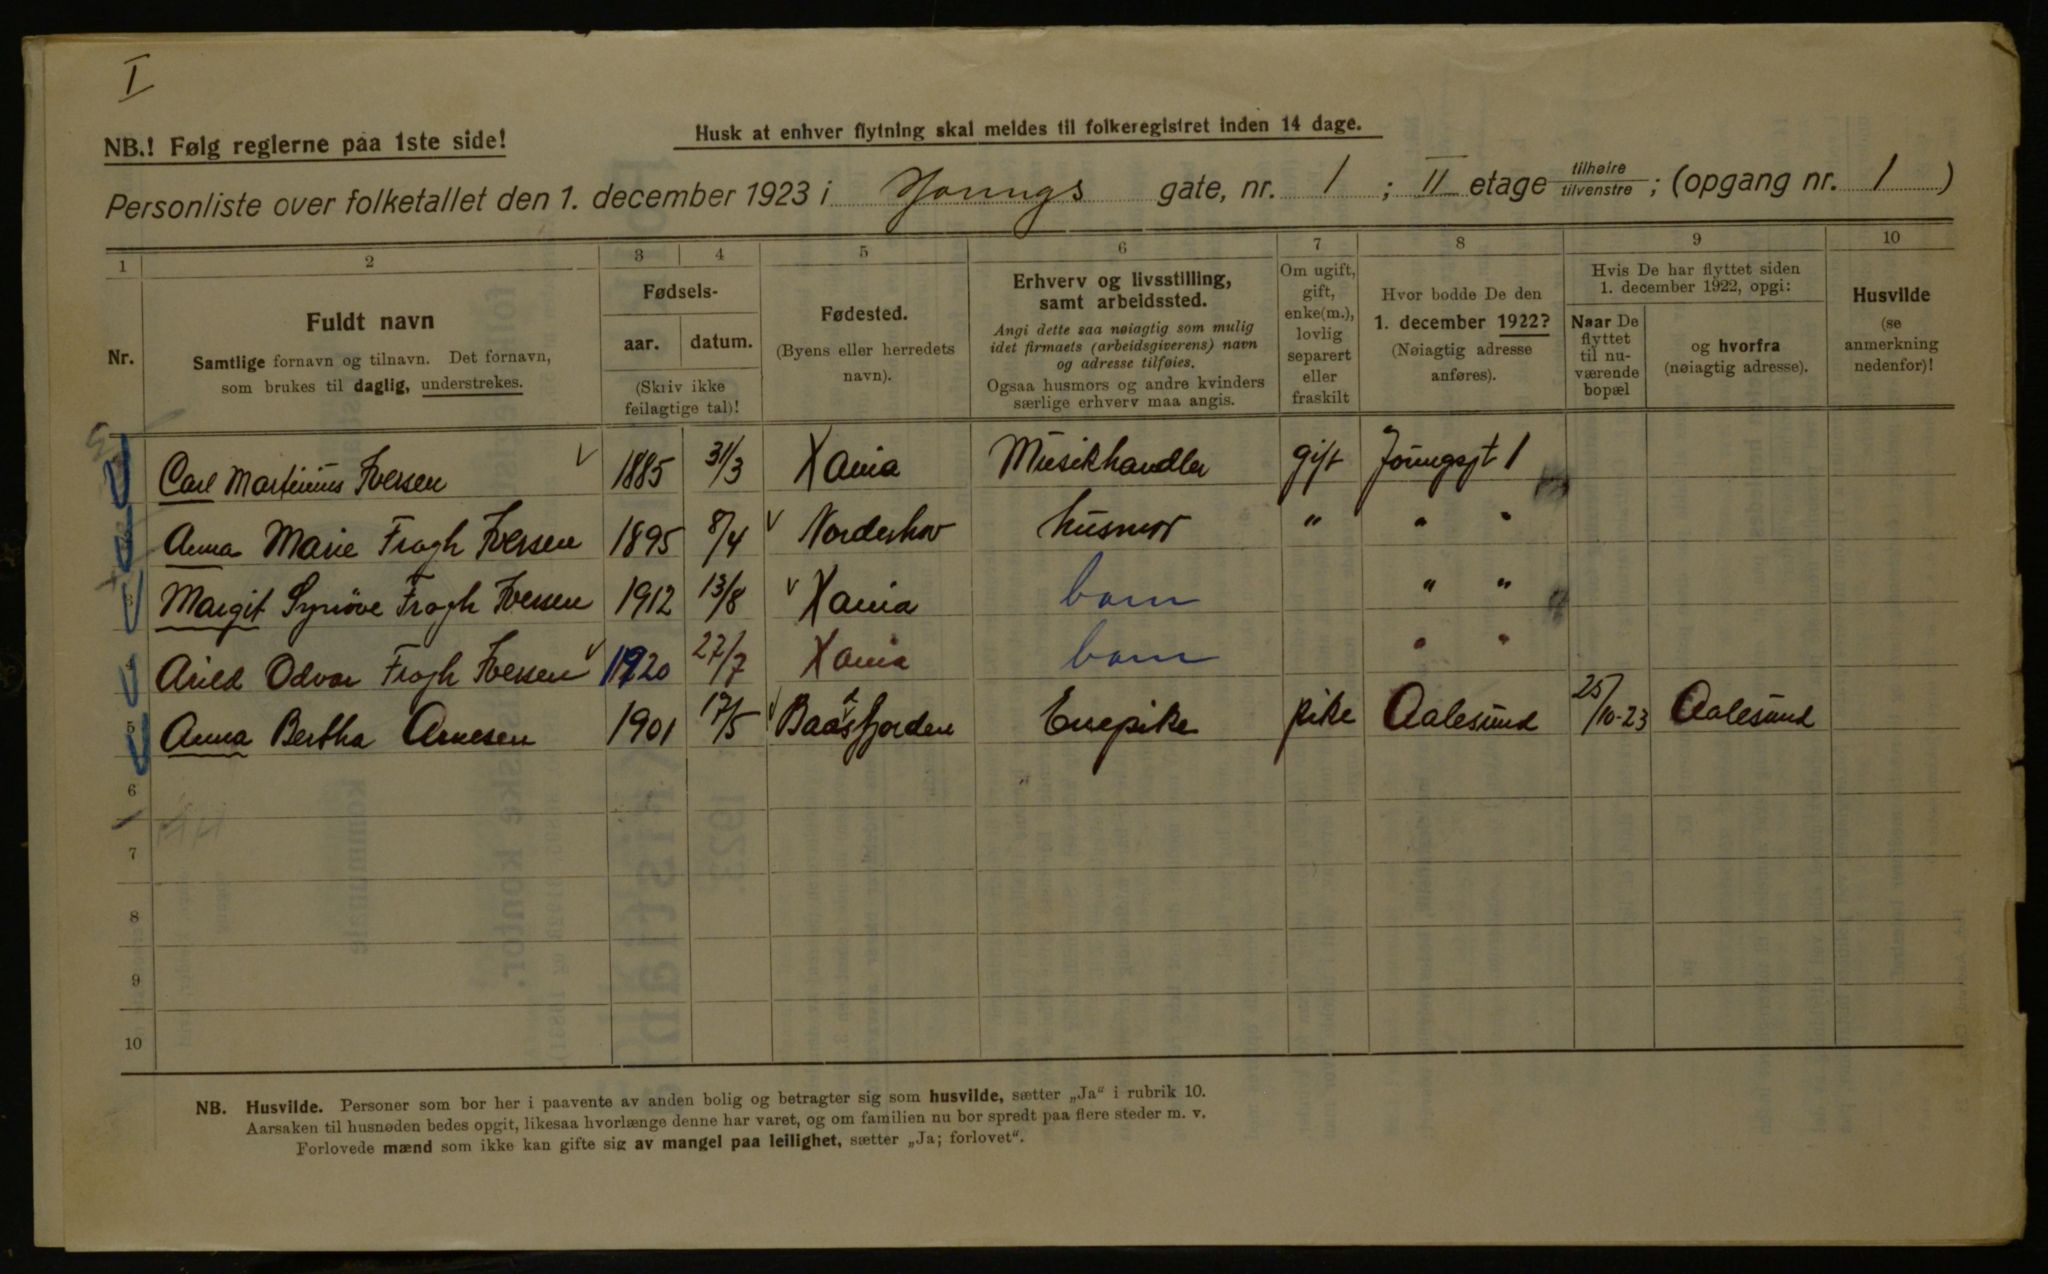 I
NB.! Følg reglerne paa 1ste side!
Husk at enhver flytning skal meldes til folkeregistret inden 14 dage.
Personliste over folketallet den 1. december 1923 i Youngs gate, nr. 1 ; II etage tilhøire tilvenstre ; (opgang nr. 1 )
1 2 3 4 5 6 7 8 9 10
Nr.
Fuldt navn
Samtlige fornavn og tilnavn. Det fornavn,
som brukes til daglig, understrekes.
Fødsels-
aar. datum.
(Skriv ikke
feilagtige tal)!
Fødested.
(Byens eller herredets
navn).
Erhverv og livsstilling,
samt arbeidssted.
Angi dette saa nøiagtig som mulig
idet firmaets (arbeidsgiverens) navn
og adresse tilføies.
Ogsaa husmors og andre kvinders
særlige erhverv maa angis.
Om ugift,
gift,
enke(m.),
lovlig
separert
eller
fraskilt
Hvor bodde De den
1. december 1922?
(Nøiagtig adresse
anføres).
Hvis De har flyttet siden
1. december 1922, opgi:
Naar De
flyttet
til nu-
værende
bopæl
og hvorfra
(nøiagtig adresse).
Husvilde
(se
anmerkning
nedenfor)!
Carl Martinius Iversen 1885 31/3 Xania Musikhandler gift Youngsgt 1
Anna Marie Fragh Iversen 1895 8/4 Norderhov husmor " " "
3 Margit Synöve Fragh Iversen 1912 13/8 Xania barn " "
4 Arild Odvar Fragh Iversen 1920 27/7 Xania barn " "
5 Anna Bertha Arnesen 1901 17/5 Baadsfjorden Enepike pike Aalesund 25/10-23 Aalesund
6
7
8
9
10
NB. Husvilde. Personer som bor her i paavente av anden bolig og betragter sig som husvilde, sætter „Ja“ i rubrik 10.
Aarsaken til husnøden bedes opgit, likesaa hvorlænge denne har varet, og om familien nu bor spredt paa flere steder m. v.
Forlovede mænd som ikke kan gifte sig av mangel paa leilighet, sætter „Ja; forlovet“.